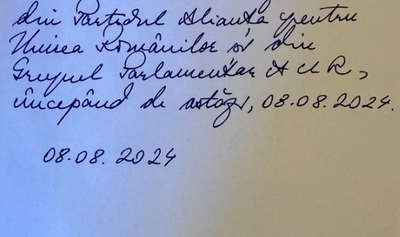 din Partidul Alianța pentru
Unirea Românilor și din
Grupul Parlamentar AUR,
începând de astăzi, 08.08.2024.
08.08.2024